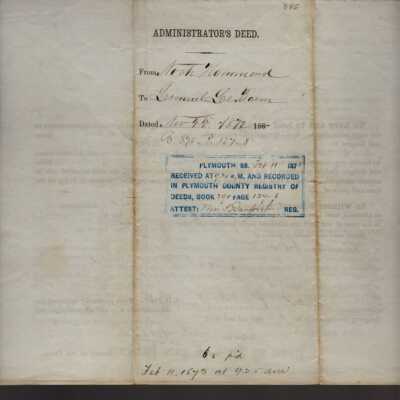 ADMINISTRATOR'S DEED.
From Noah Hammond
To Lemuel LeBaron
Dated Nov 22 1872 186-
PLYMOUTH SS. Feb 11 187
RECEIVED AT 9 A. M. AND RECORDED
IN PLYMOUTH COUNTY REGISTRY OF
DEEDS, BOOK PAGE
ATTEST: Wm S Danforth REG.
pd
Feb 11, 1873 at 9.25 am